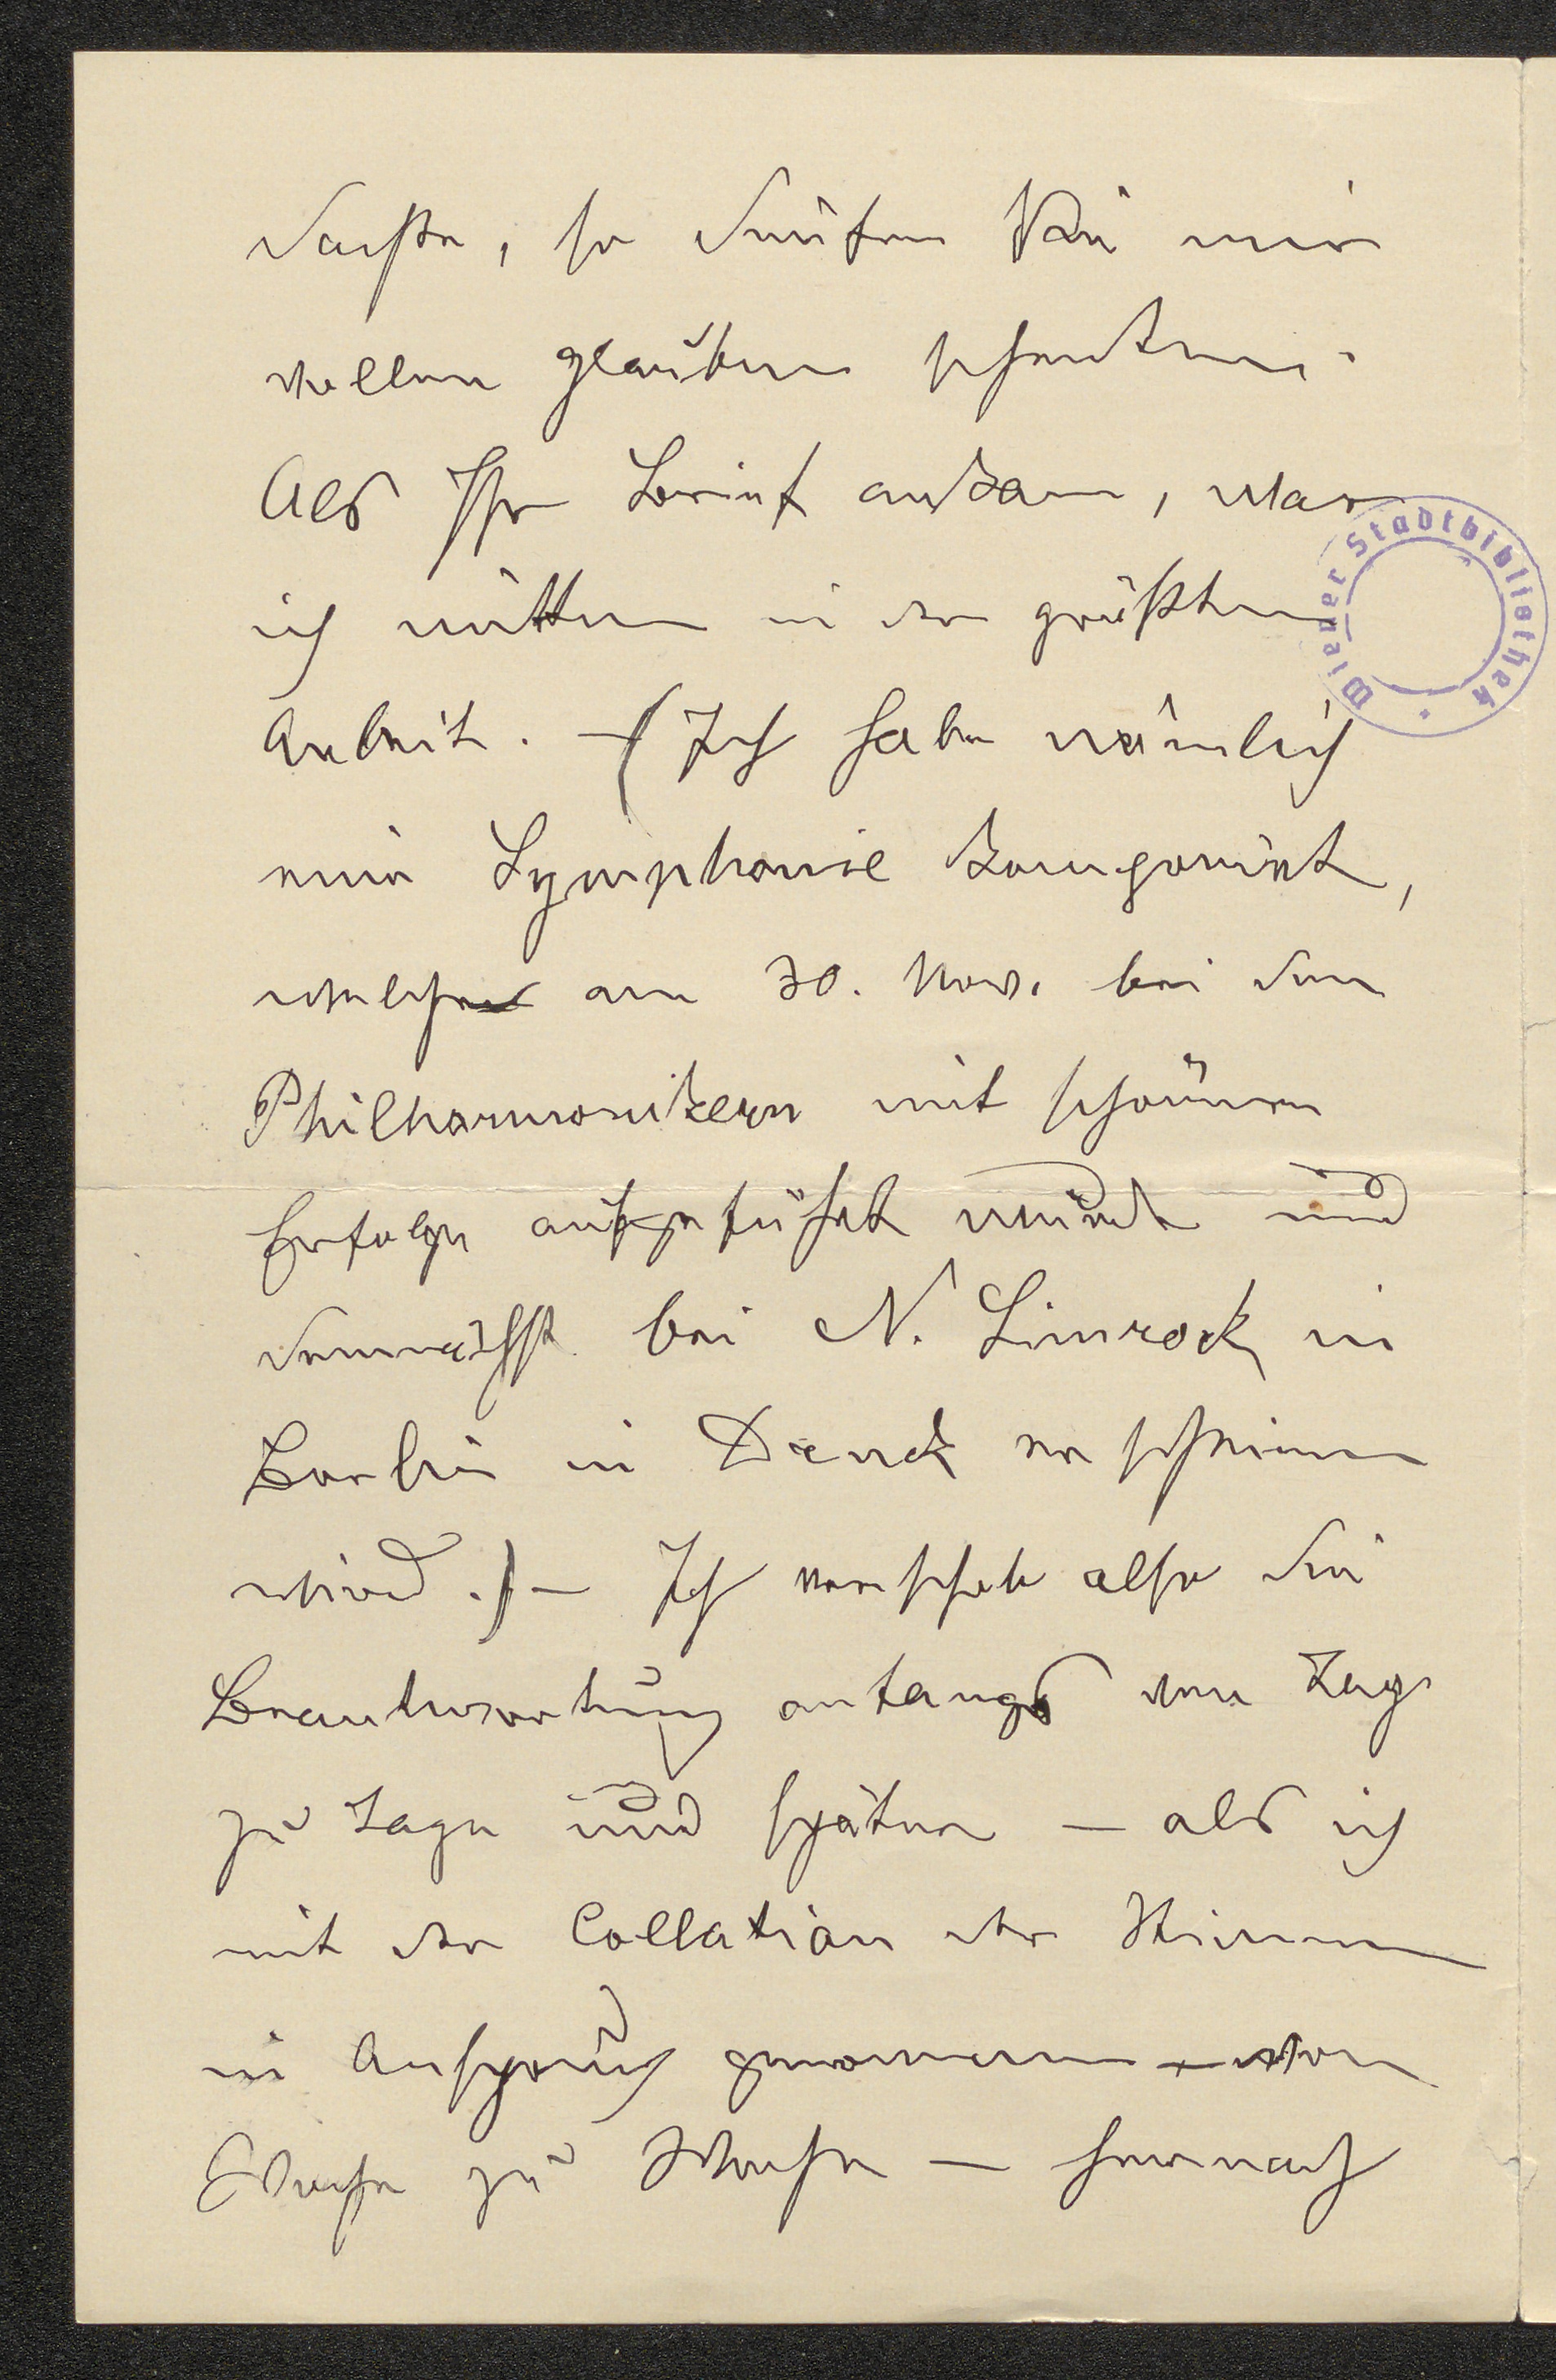 dachte, so dürfen Sie mir
vollen Glauben schenken.
Als Ihr Brief ankam, war
ich mitten in der größten
Arbeit. – (Ich habe nämlich
eine Symphonie komponirt,
welche am 30. Nov. bei den
Philharmonikern mit schönem
Erfolge aufgeführt wurde und
demnächst bei N. Simrock in
Berlin in Druck erscheinen
wird.) – Ich verschob also die
Beantwortung anfangs von Tag
zu Tage und später – als ich
mit der Collation der Stimmen
in Anspruch genommen – von
Woche zu Woche – hernach
Wiener Stadtbibliothek